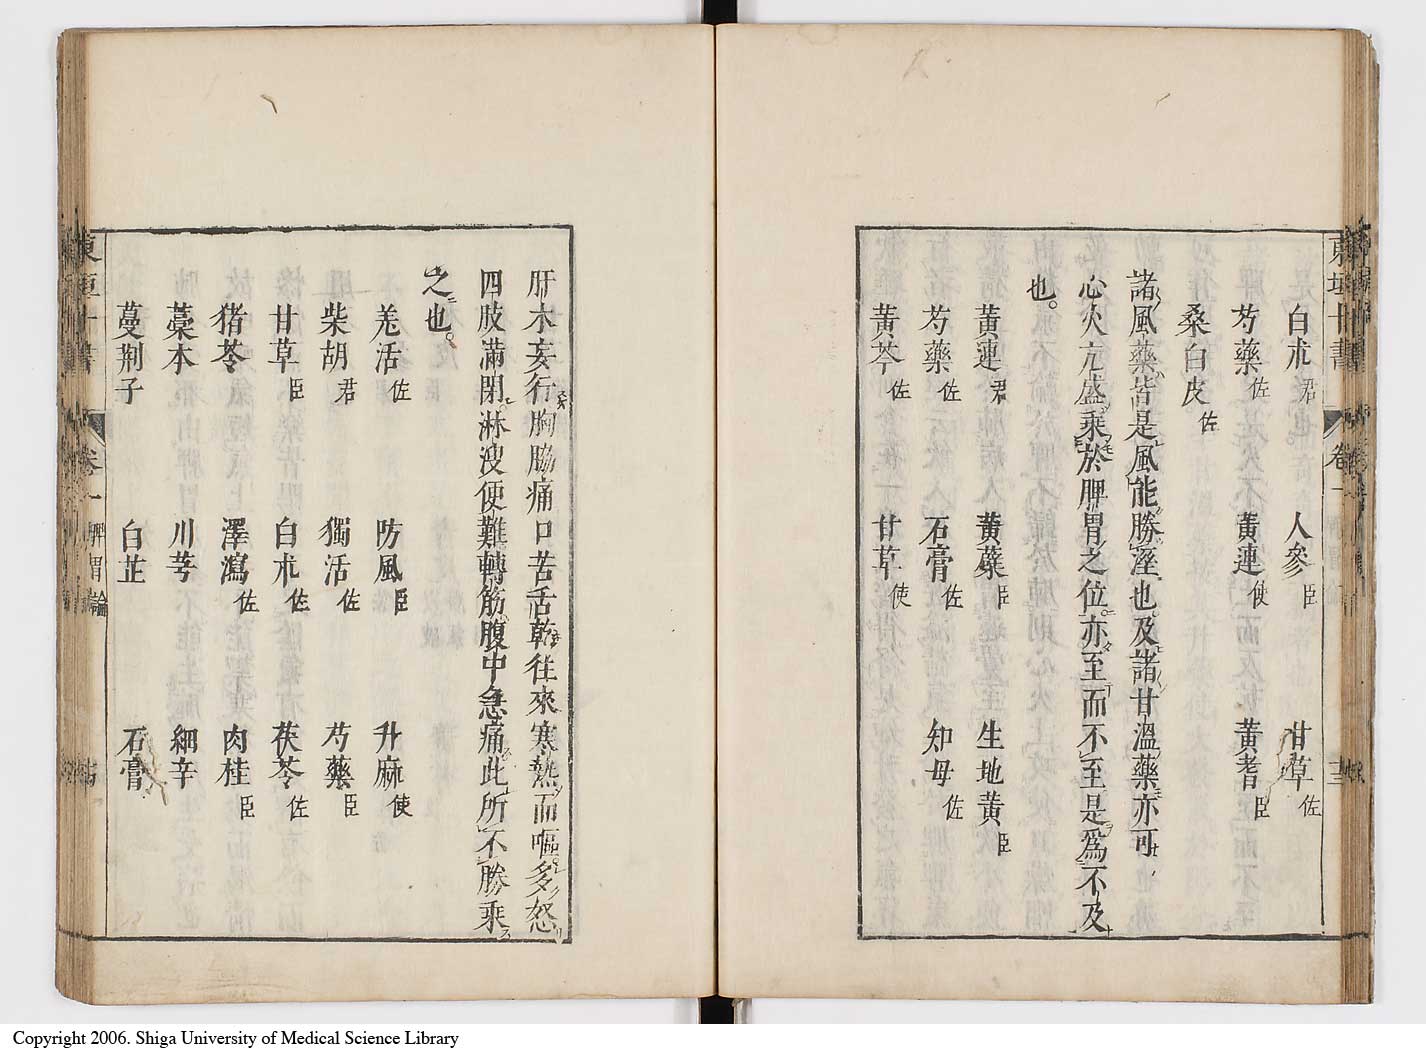 東垣十書
卷一
十三
白朮君 人參臣 甘草佐
芍藥佐 黃連使 黃耆臣
桑白皮佐
諸風藥皆是風能勝溼也及諸甘溫藥亦可
心火亢盛乘於脾胃之位亦至而不至是爲不及
也。
黃連君 黃蘗臣 生地黃臣
芍藥佐 石膏佐 知母佐
黃芩佐 甘草使
肝木妄行胸脇痛口苦舌乾往來寒熱而嘔多怒
四肢滿閉淋溲便難轉筋腹中急痛此所不勝乘
之也。
羌活佐 防風臣 升麻使
柴胡君 獨活佐 芍藥臣
甘草臣 白朮佐 茯苓佐
猪苓 澤瀉佐 肉桂臣
藁本 川芎 細辛
蔓荆子 白芷 石膏
東垣十書
卷一
脾胃論
Copyright 2006. Shiga University of Medical Science Library